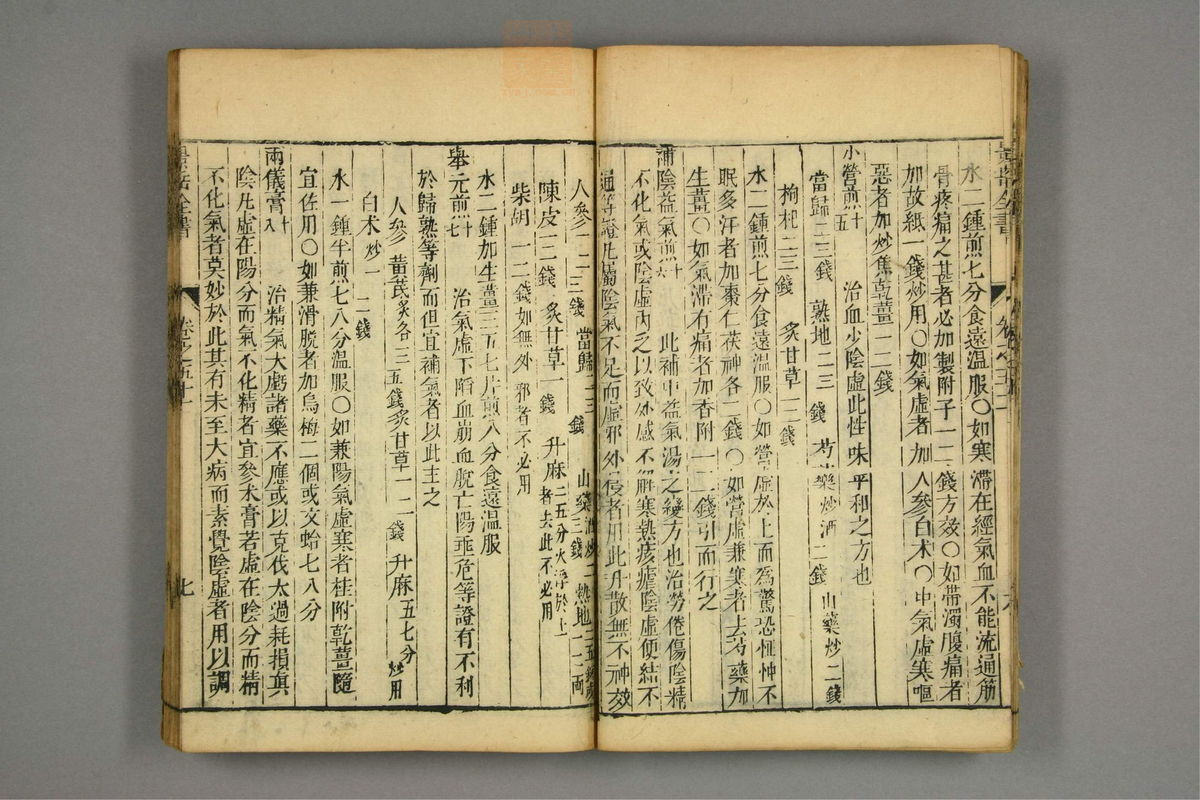 水二鍾煎七分食遠溫服〇如寒滯在經氣血不能流通筋
骨疼痛之甚者必加製附子一二錢方效〇如帶濁腹痛者
加故紙一錢炒用〇如氣虛者加人參白术〇中氣虛寒嘔
惡者加炒焦乾薑一二錢
小營煎十五 治血少陰虛此性味平和之方也
當歸二三錢 熟地二三錢 芍藥炒酒二錢 山藥炒二錢
枸杞二三錢 炙甘草一二錢
水二鍾煎七分食遠溫服〇如營虛於上而為驚恐怔忡不
眠多汗者加棗仁茯神各二錢〇如營虛兼寒者去芍藥加
生薑〇如氣滯有痛者加香附一二錢引而行之
補陰益氣煎十六 此補中益氣湯之變方也治勞倦傷陰精
不化氣或陰虛內乏以致外感不解寒熱痎瘧陰虛便結不
通等證凡屬陰氣不足而虛邪外侵者用此升散無不神效
人參一二三錢 當歸二三錢 山藥酒炒二三錢 熟地三五錢或一二兩
陳皮一二錢 炙甘草一錢 升麻三五分火浮於上者去此不必用
柴胡一二錢如無外邪者不必用
水二鍾加生薑三五七片煎八分食遠溫服
舉元煎十七 治氣虛下陷血崩血脫亡陽垂危等證有不利
於歸熟等劑而但宜補氣者以此主之
人參 黃芪炙各三五錢 炙甘草一二錢 升麻五七分炒用
白术炒一二錢
水一鍾半煎七八分溫服〇如兼陽氣虛寒者桂附乾薑隨
宜佐用〇如兼滑脫者加烏梅二個或文蛤七八分
兩儀膏十八 治精氣大虧諸藥不應或以克伐太過耗損真
陰凡虛在陽分而氣不化精者宜參术膏若虛在陰分而精
不化氣者莫妙於此其有未至大病而素覺陰虛者用以調
景岳全書 卷之五十一